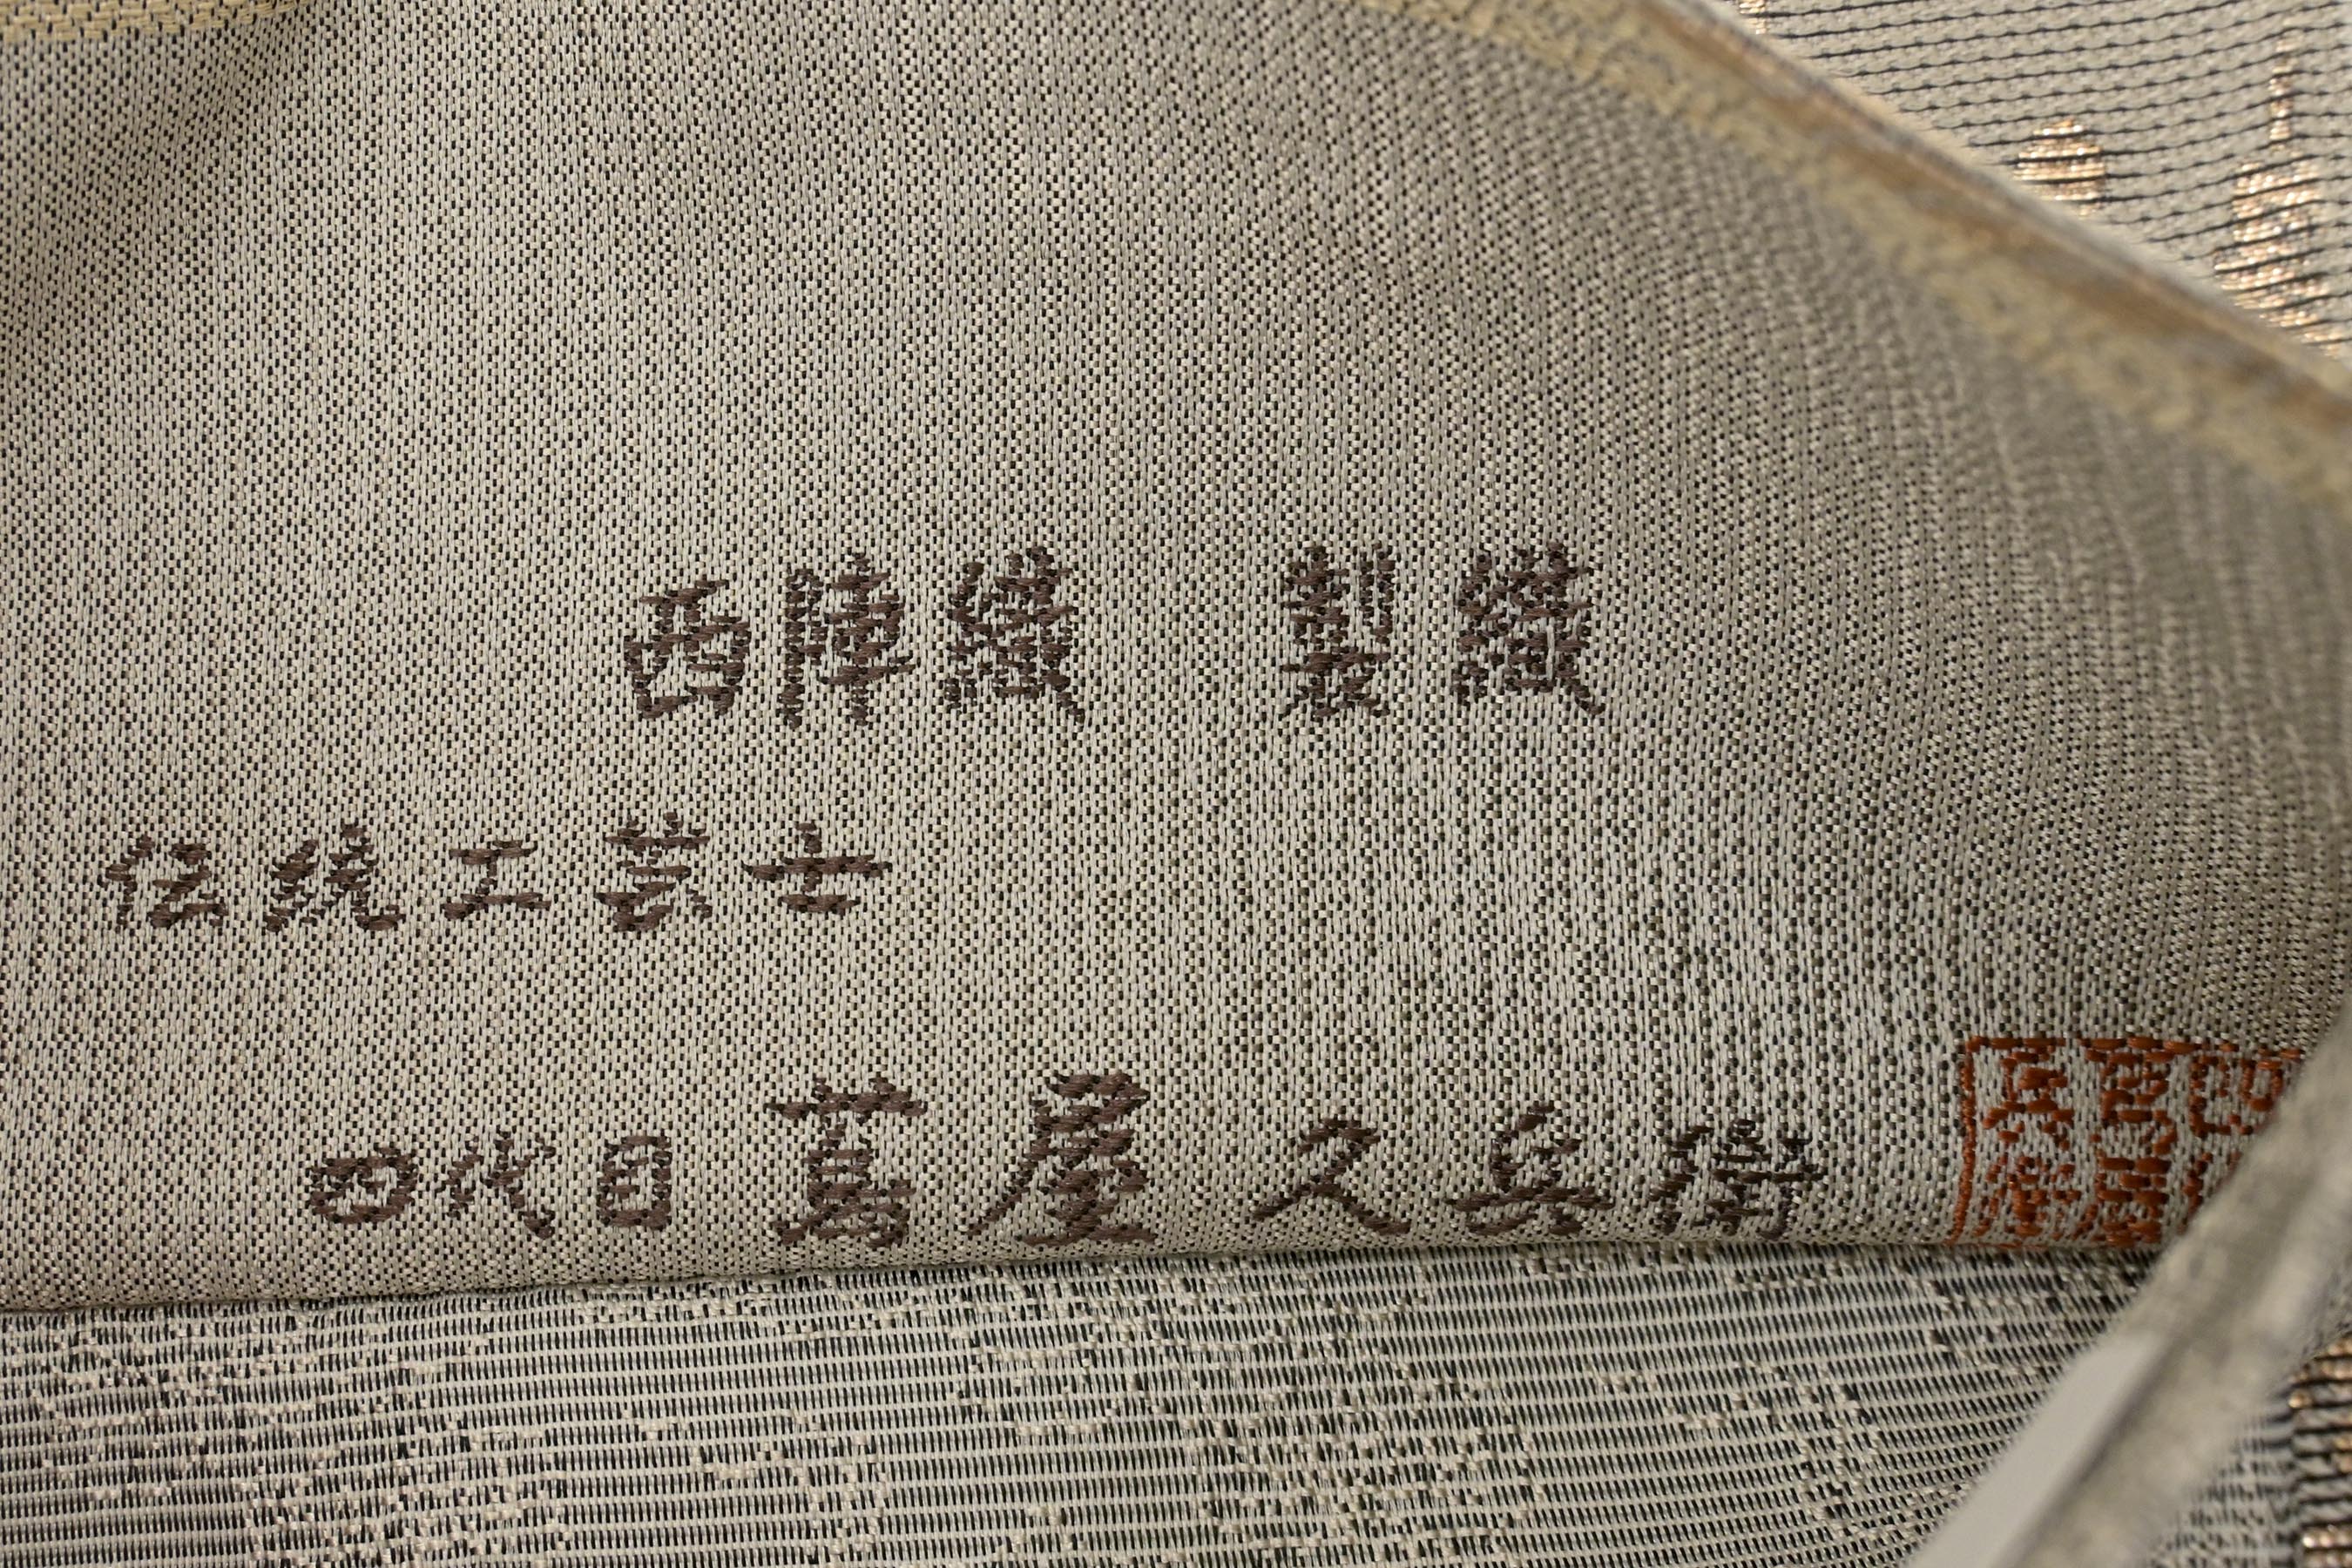 西陣織 製織
伝統工芸士
四代目 蔦屋 久兵衛